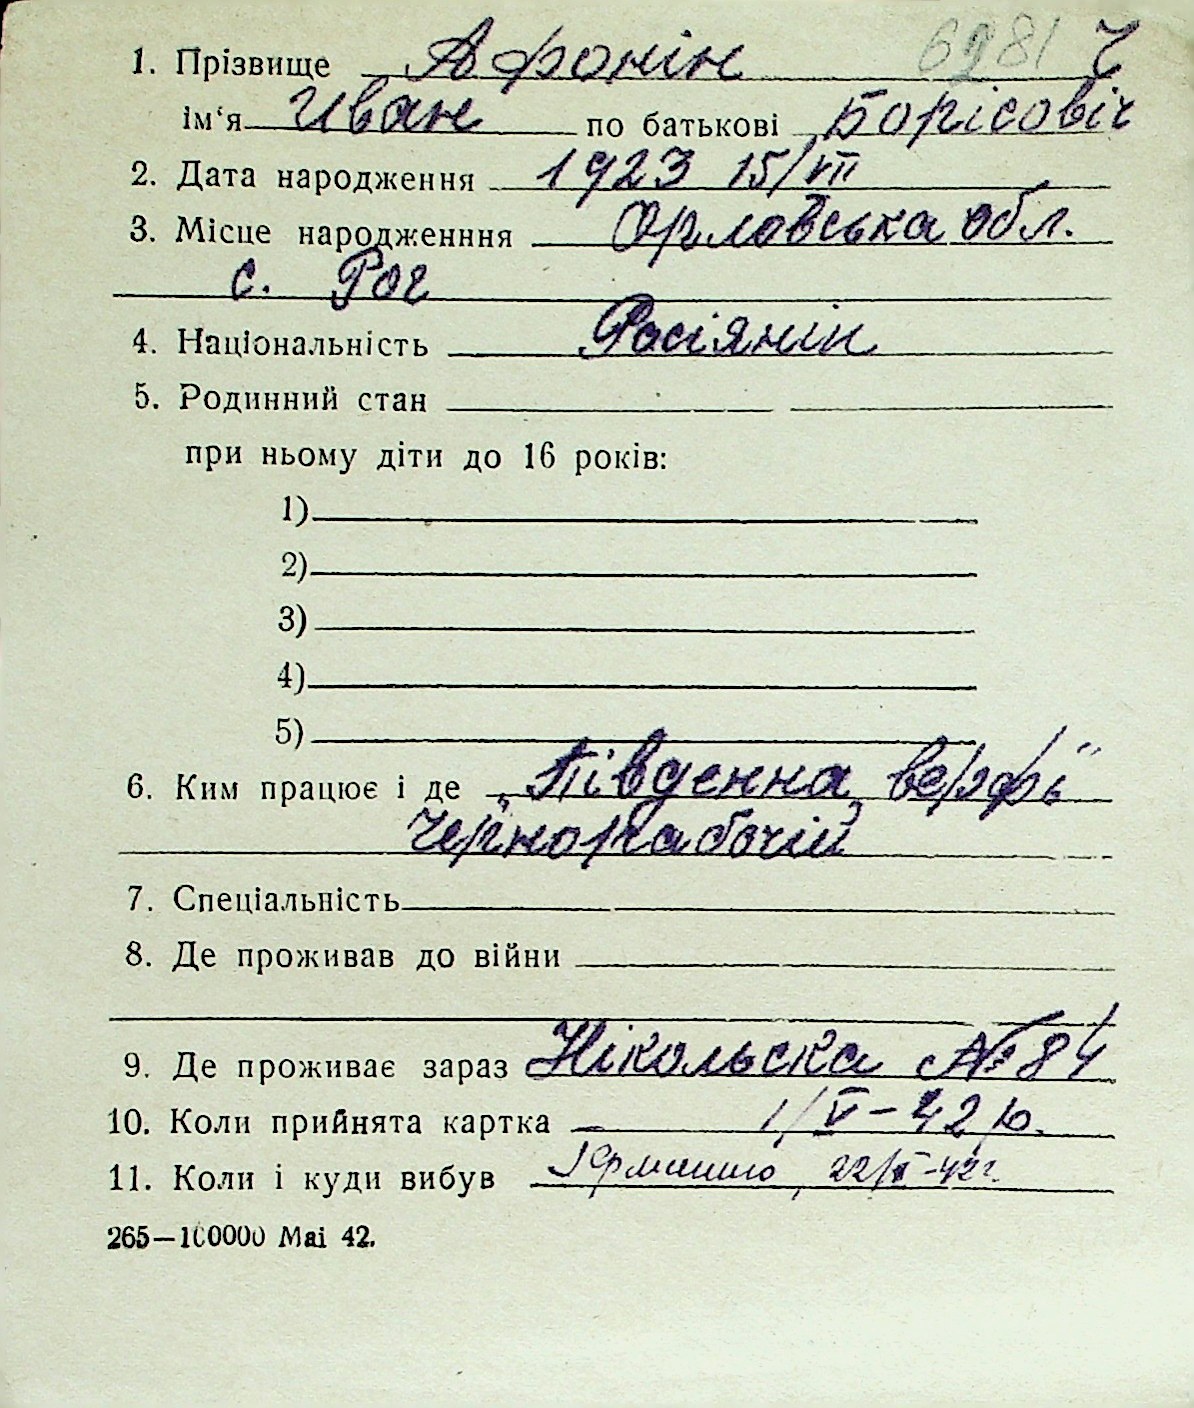 1. Прізвище Афонін 6281 Ч
ім‘я Иван по батькові Борісовіч
2. Дата народження 1923 15/VII
3. Місце народженння Орловська обл.
с. Рог
4. Національність Росіянін
5. Родинний стан
при ньому діти до 16 років:
1)
2)
3)
4)
5)
6. Ким працює і де „Південна верфь“
Чернорабочій
7. Спеціальність
8. Де проживав до війни
9. Де проживає зараз Нікольска № 84
10. Коли прийнята картка 1/V–42 р.
11. Коли і куди вибув Германию, 22/ -42г.
265—100000 Mai 42.